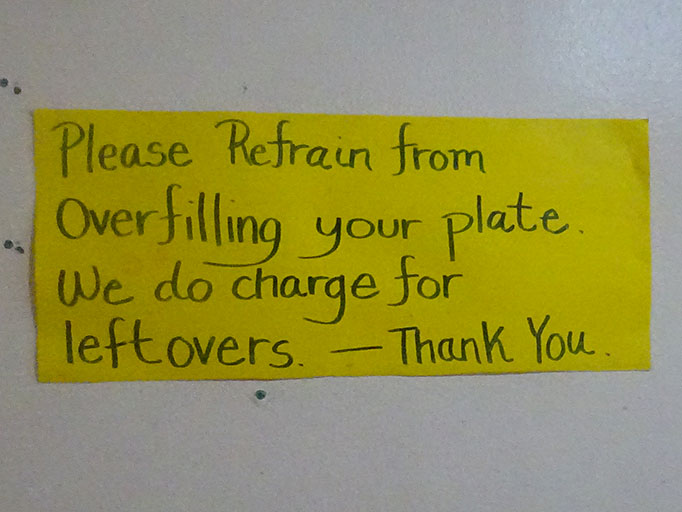 Please Refrain from
Overfilling your plate.
We do charge for
leftovers. — Thank You.